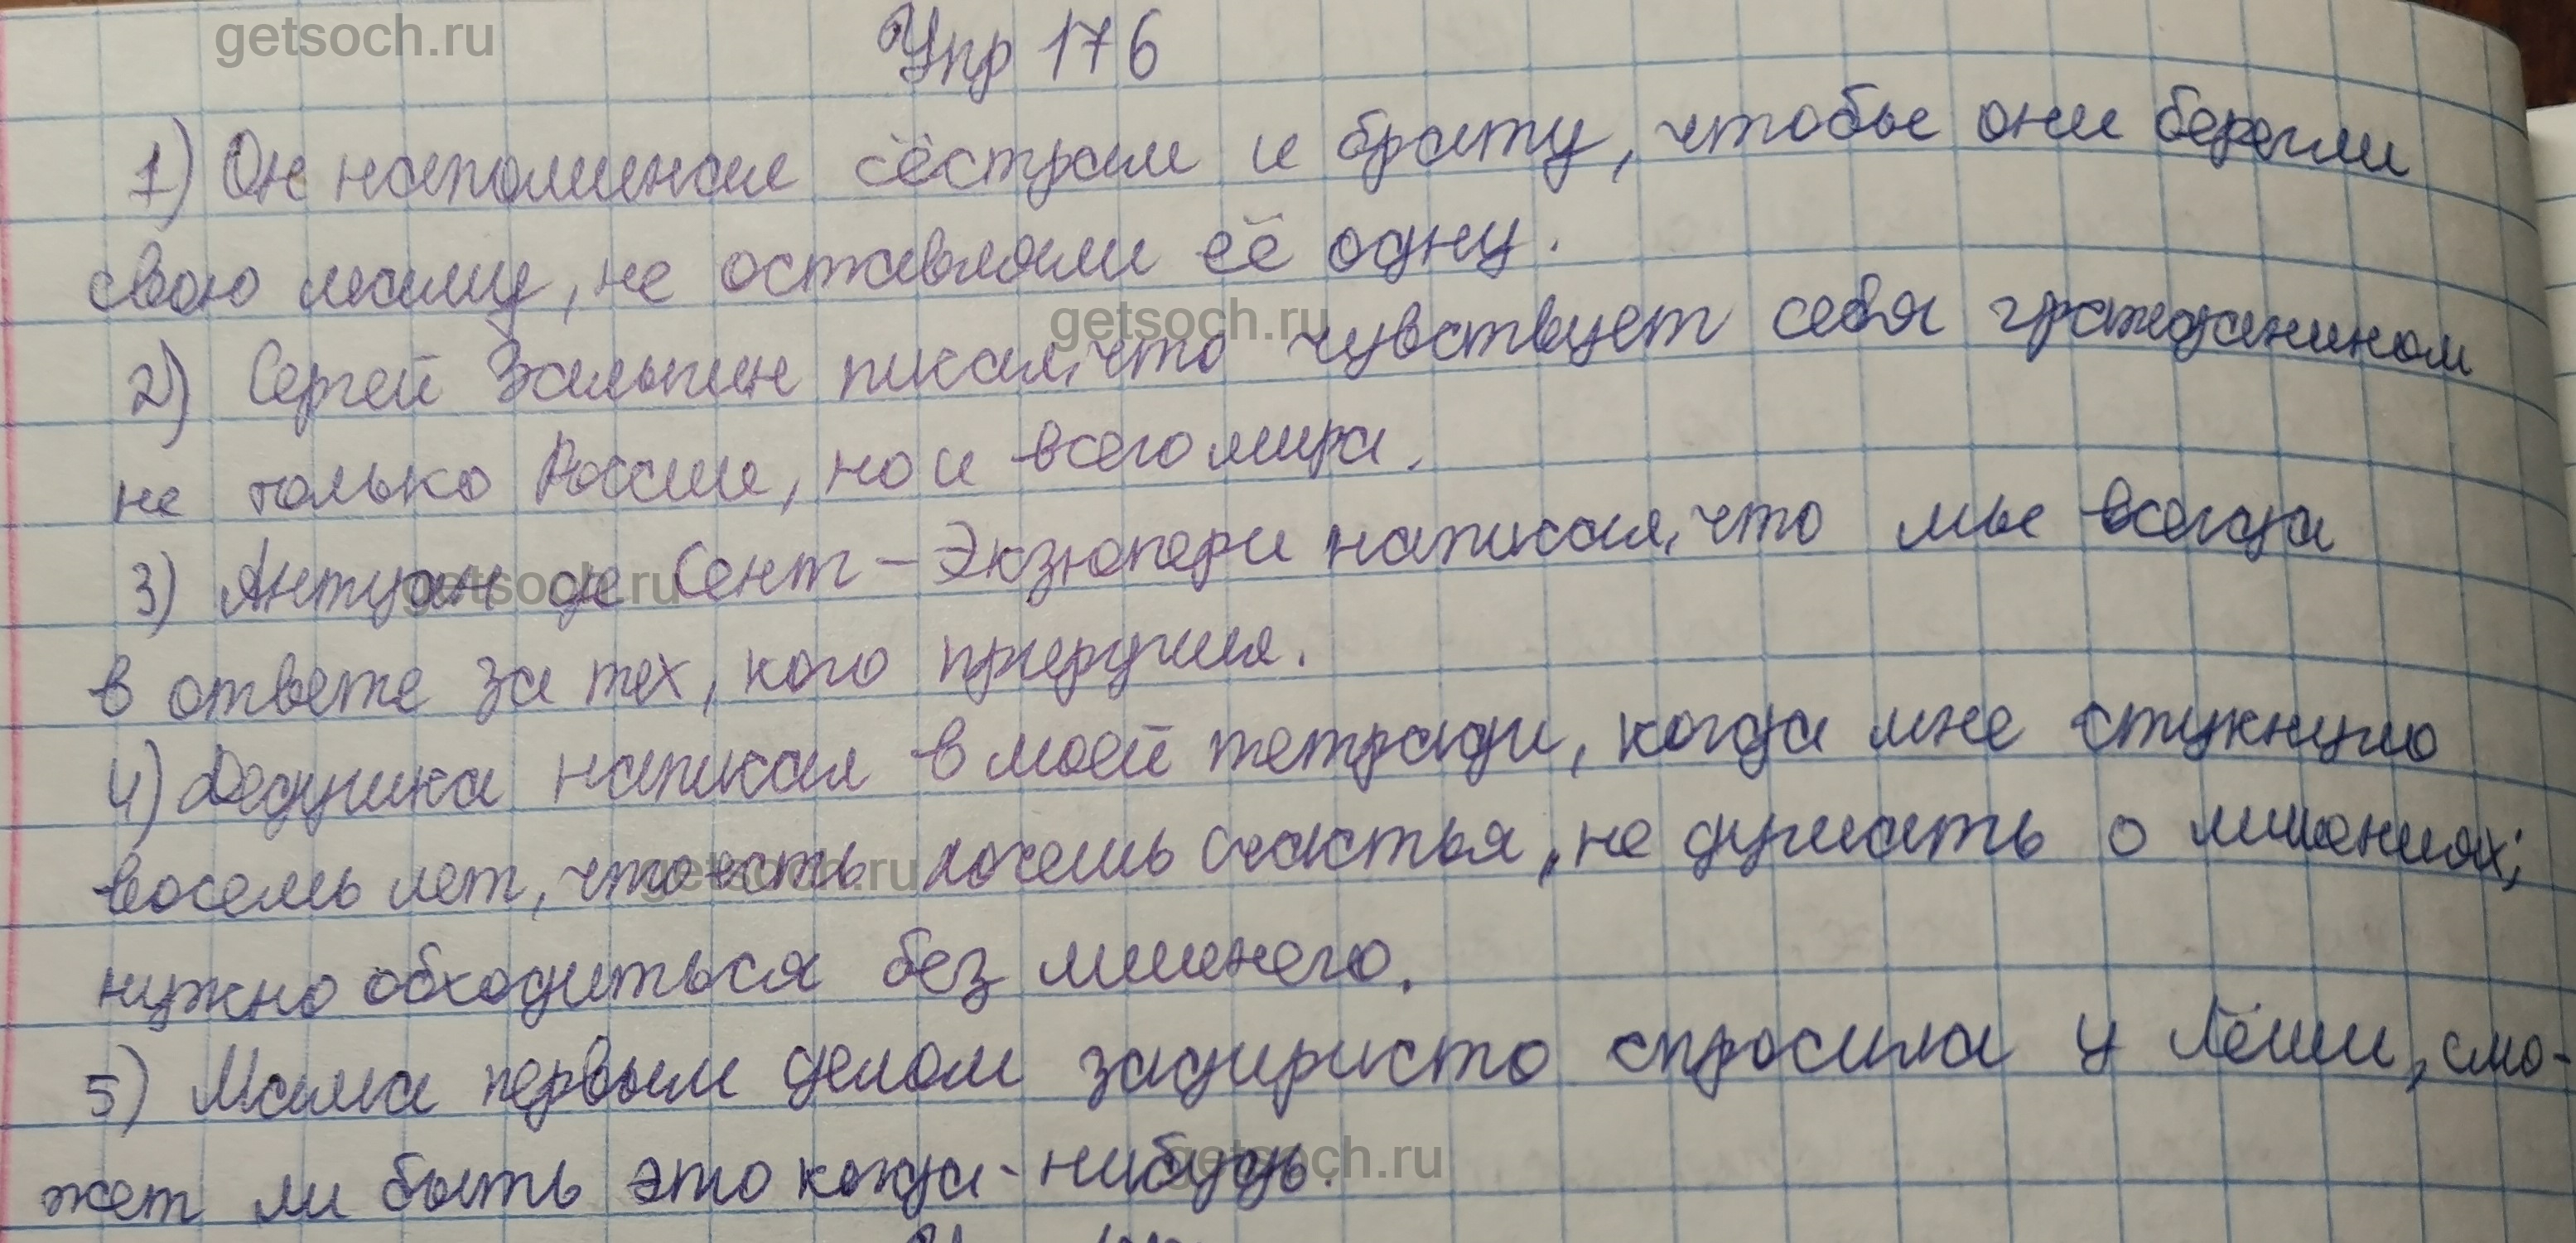 getsoch.ru
Упр 176
1) Он напоминал сёстрам и брату, чтобы они берегли
свою маму, не оставляли её одну.
getsoch.ru
2) Сергей Залыгин писал, что чувствует себя гражданином
не только России, но и всего мира.
3) Антуан де Сент-Экзюпери написал, что мы всегда
getsoch.ru
в ответе за тех, кого приручил.
4) Дедушка написал в моей тетради, когда мне стукнуло
восемь лет, что есть хочешь счастья, не думать о лишениях;
getsoch.ru
нужно обходиться без лишнего.
5) Мама первым делом задиристо спросила у Лёши, смо-
жет ли быть это когда-нибудь.
getsoch.ru